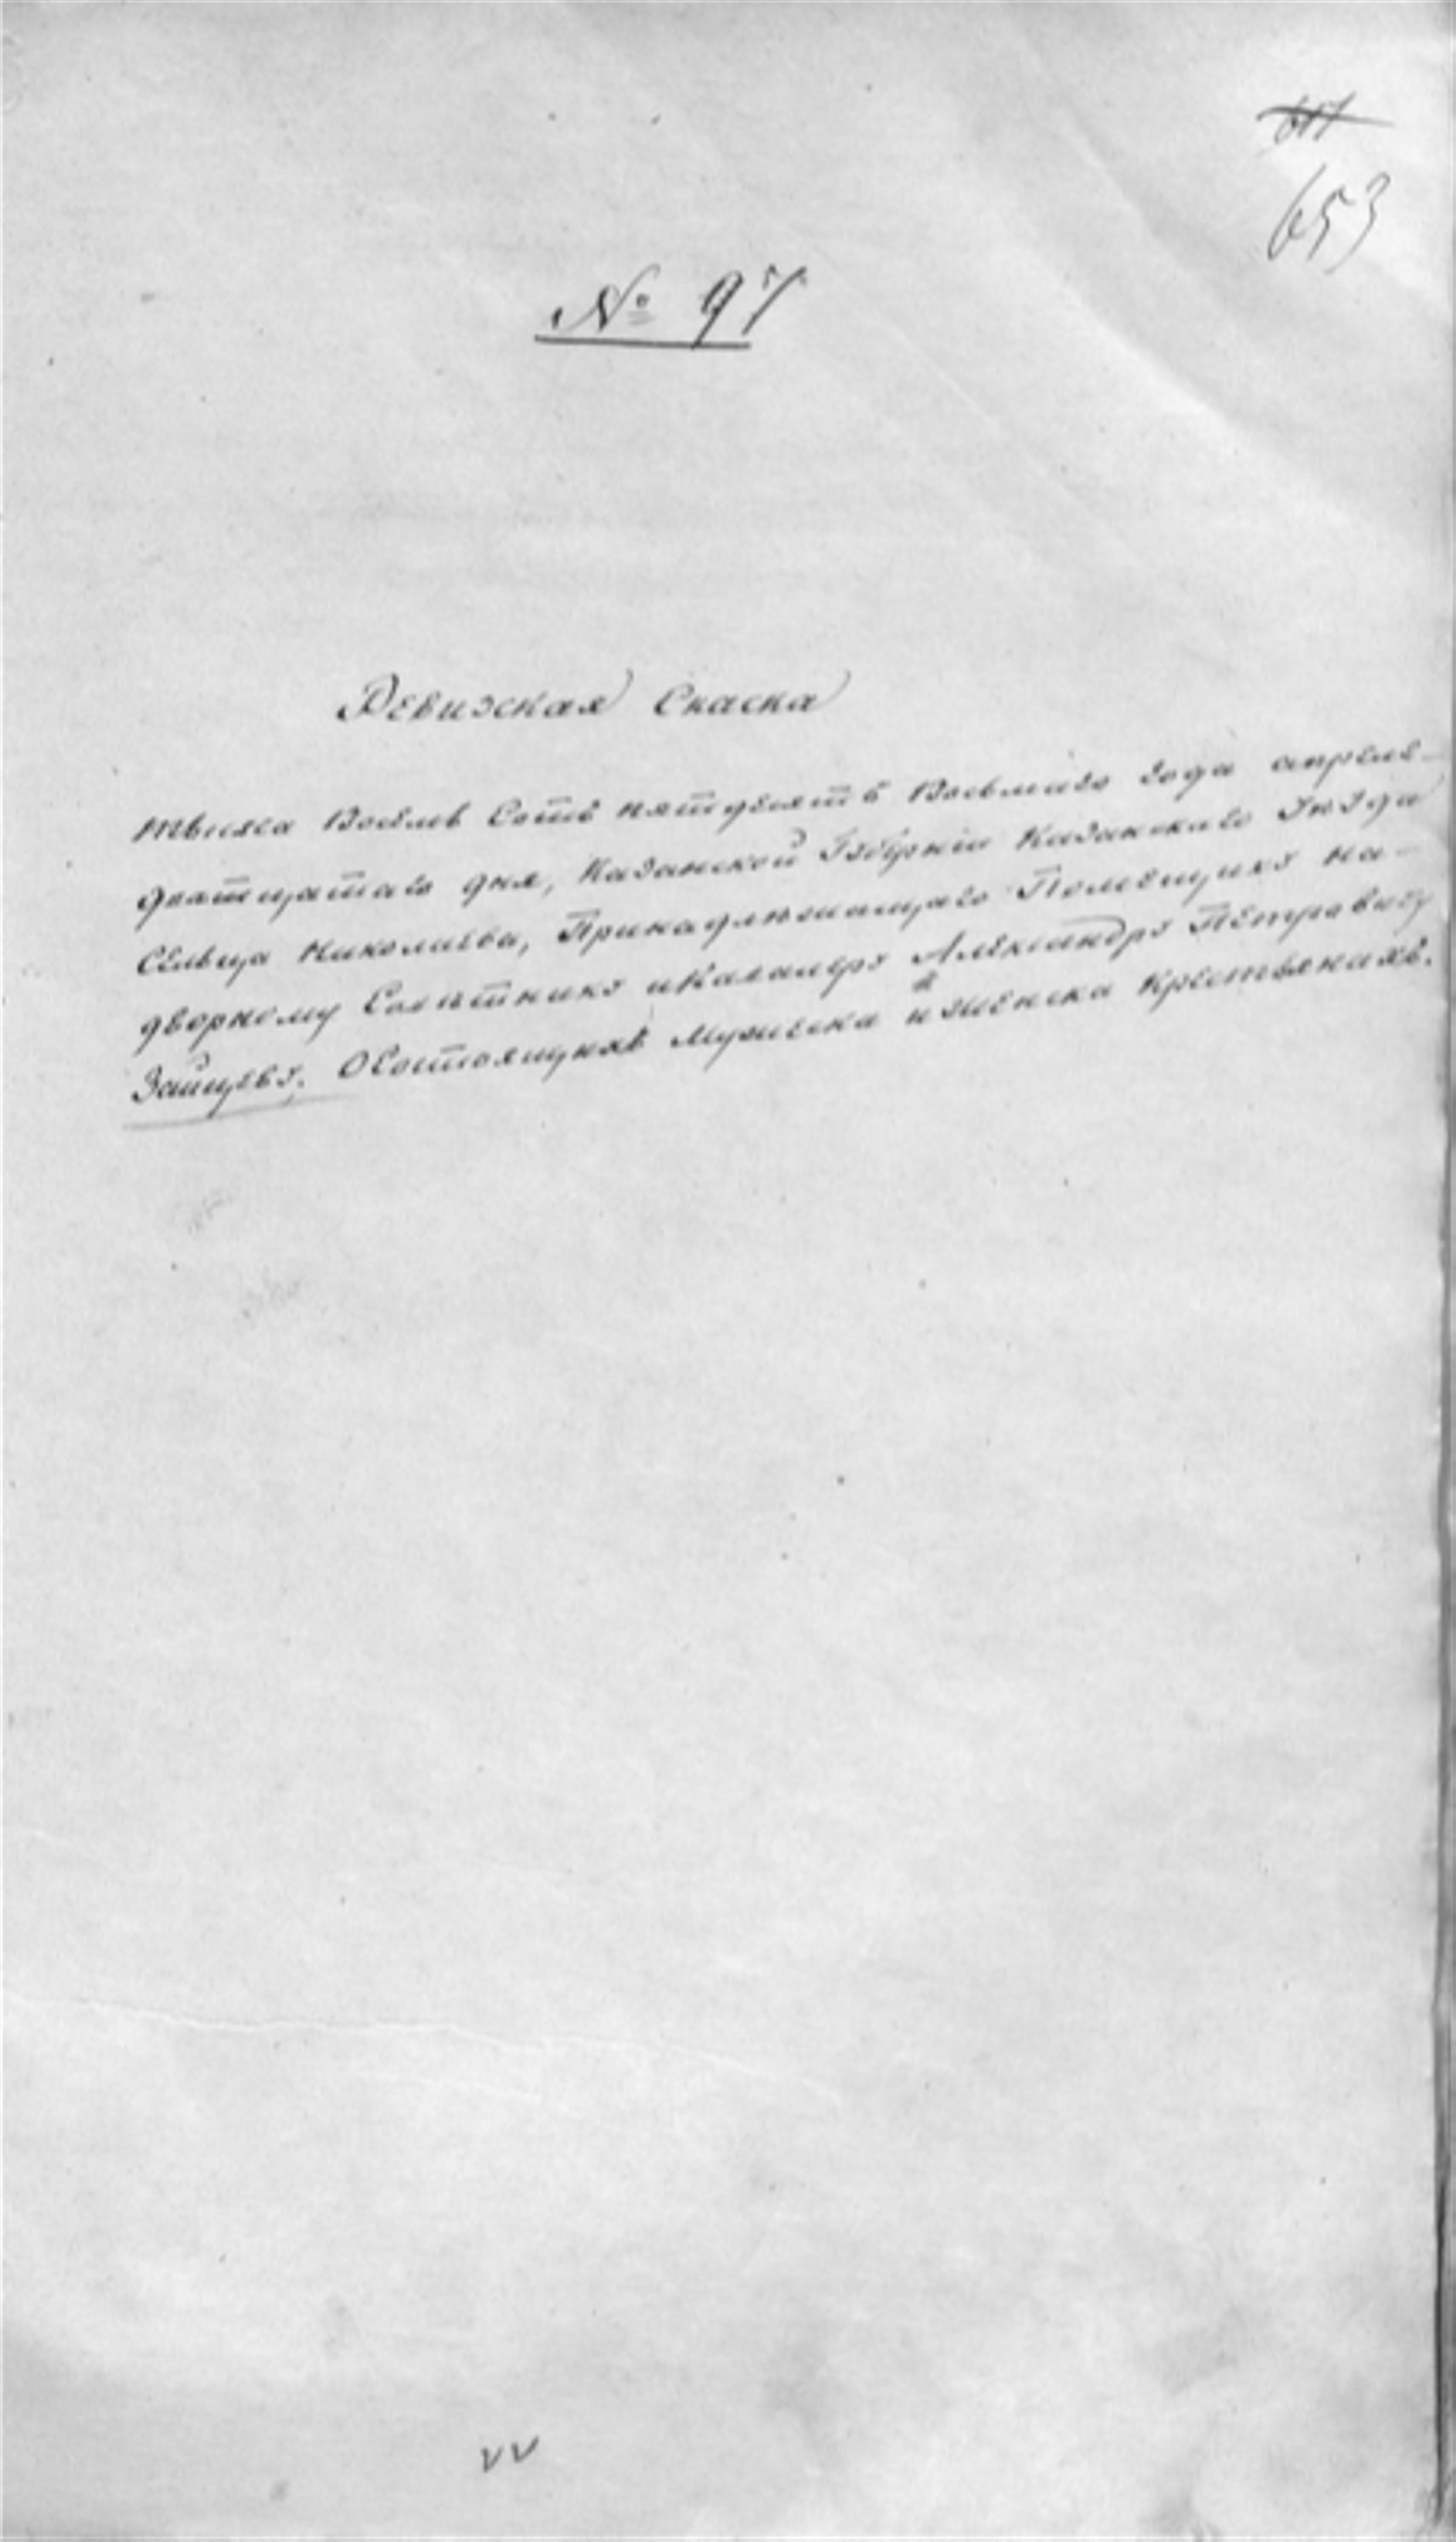 653
№ 97
Ревизская Сказка
тысяча Восемь Сотъ пятьдесятъ Восьмаго года апреля
дватцатаго дня, Казанской Губерніи Казанскаго Уезда
Сельца Николаева, Принадлежащаго Помещику На-
дворному Советнику и Кавалеру Александру Петровичу
Зайцеву. О Состоящихъ мужеска и женска Крестьянахъ.